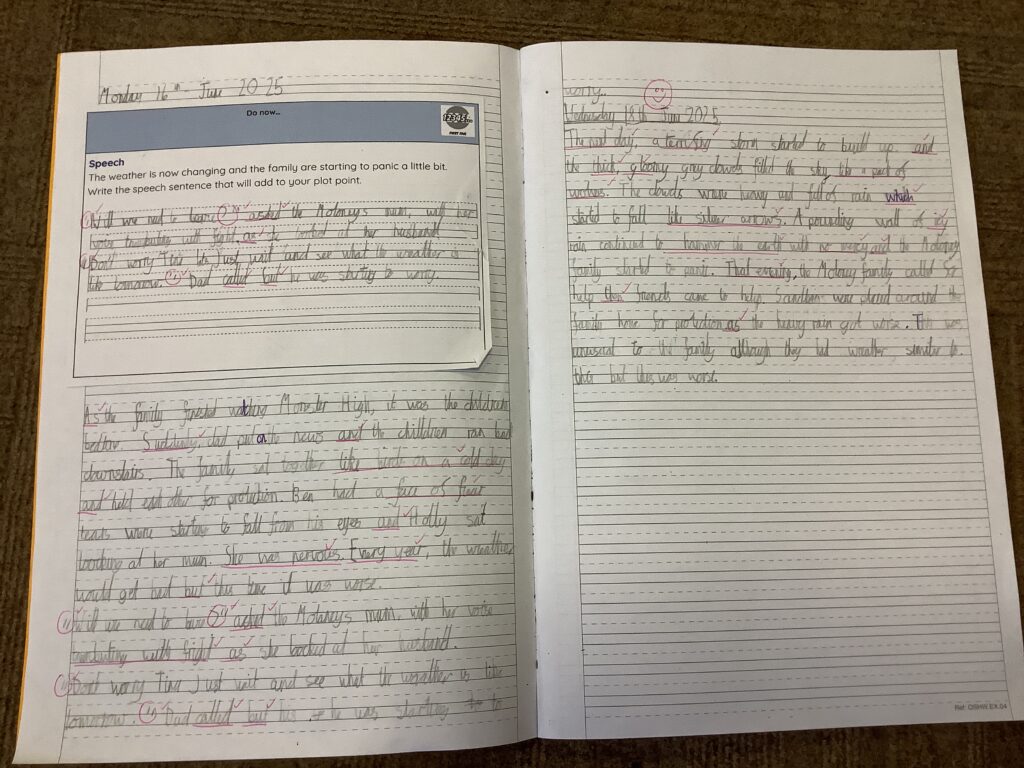 Monday 16th June 2025
Do now...
123-45...
FIRST FIVE
Speech
The weather is now changing and the family are starting to panic a little bit.
Write the speech sentence that will add to your plot point.
"Will we need to leave?" asked the Moloneys mum, with her
voice trembiling with fright as she looked at her husband
"Dont worry Tina lets Just wait and see what the weather is
like tomorrow." Dad called but he was starting to worry.
As the family finested watching Monster High, it was the childrens
bedtime. Suddenly, dad put on the news and the chilldren ran back
downstairs. The family sat together like birds on a cold day
and held eachother for protection. Ben had a face of fear
tears were starting to fall from his eyes and Holly sat
loocking at her mum. She was nervous. Every year, the weather
would get bad but this time it was worse.
"Will we need to leave?" asked the Moloneys mum, with her voice
trembiling with fright as she loocked at her husband.
"Dont worry Tina Just wait and see what the weather is like
tomorrow." Dad called but his he was starting to to
worry.
Wednesday 18th June 2025
The next day, a terrifing storm started to build up and
the thick, gloomy gray clowds filled the sky like a pack of
wolves. The clowds were heavy and full of rain which
started to fall like silver arrows. A pounding wall of icy
rain continued to hammer the earth with no mercy and the Moloney
family started to panic. That evening, the Moloney family called for
help their friends came to help. Sandbags were placed around the
family home for protection as the heavy rain got worse. This was
unusual to the family although they had weather similar to
this but this was worse.
Ref: QSHW.EX.04